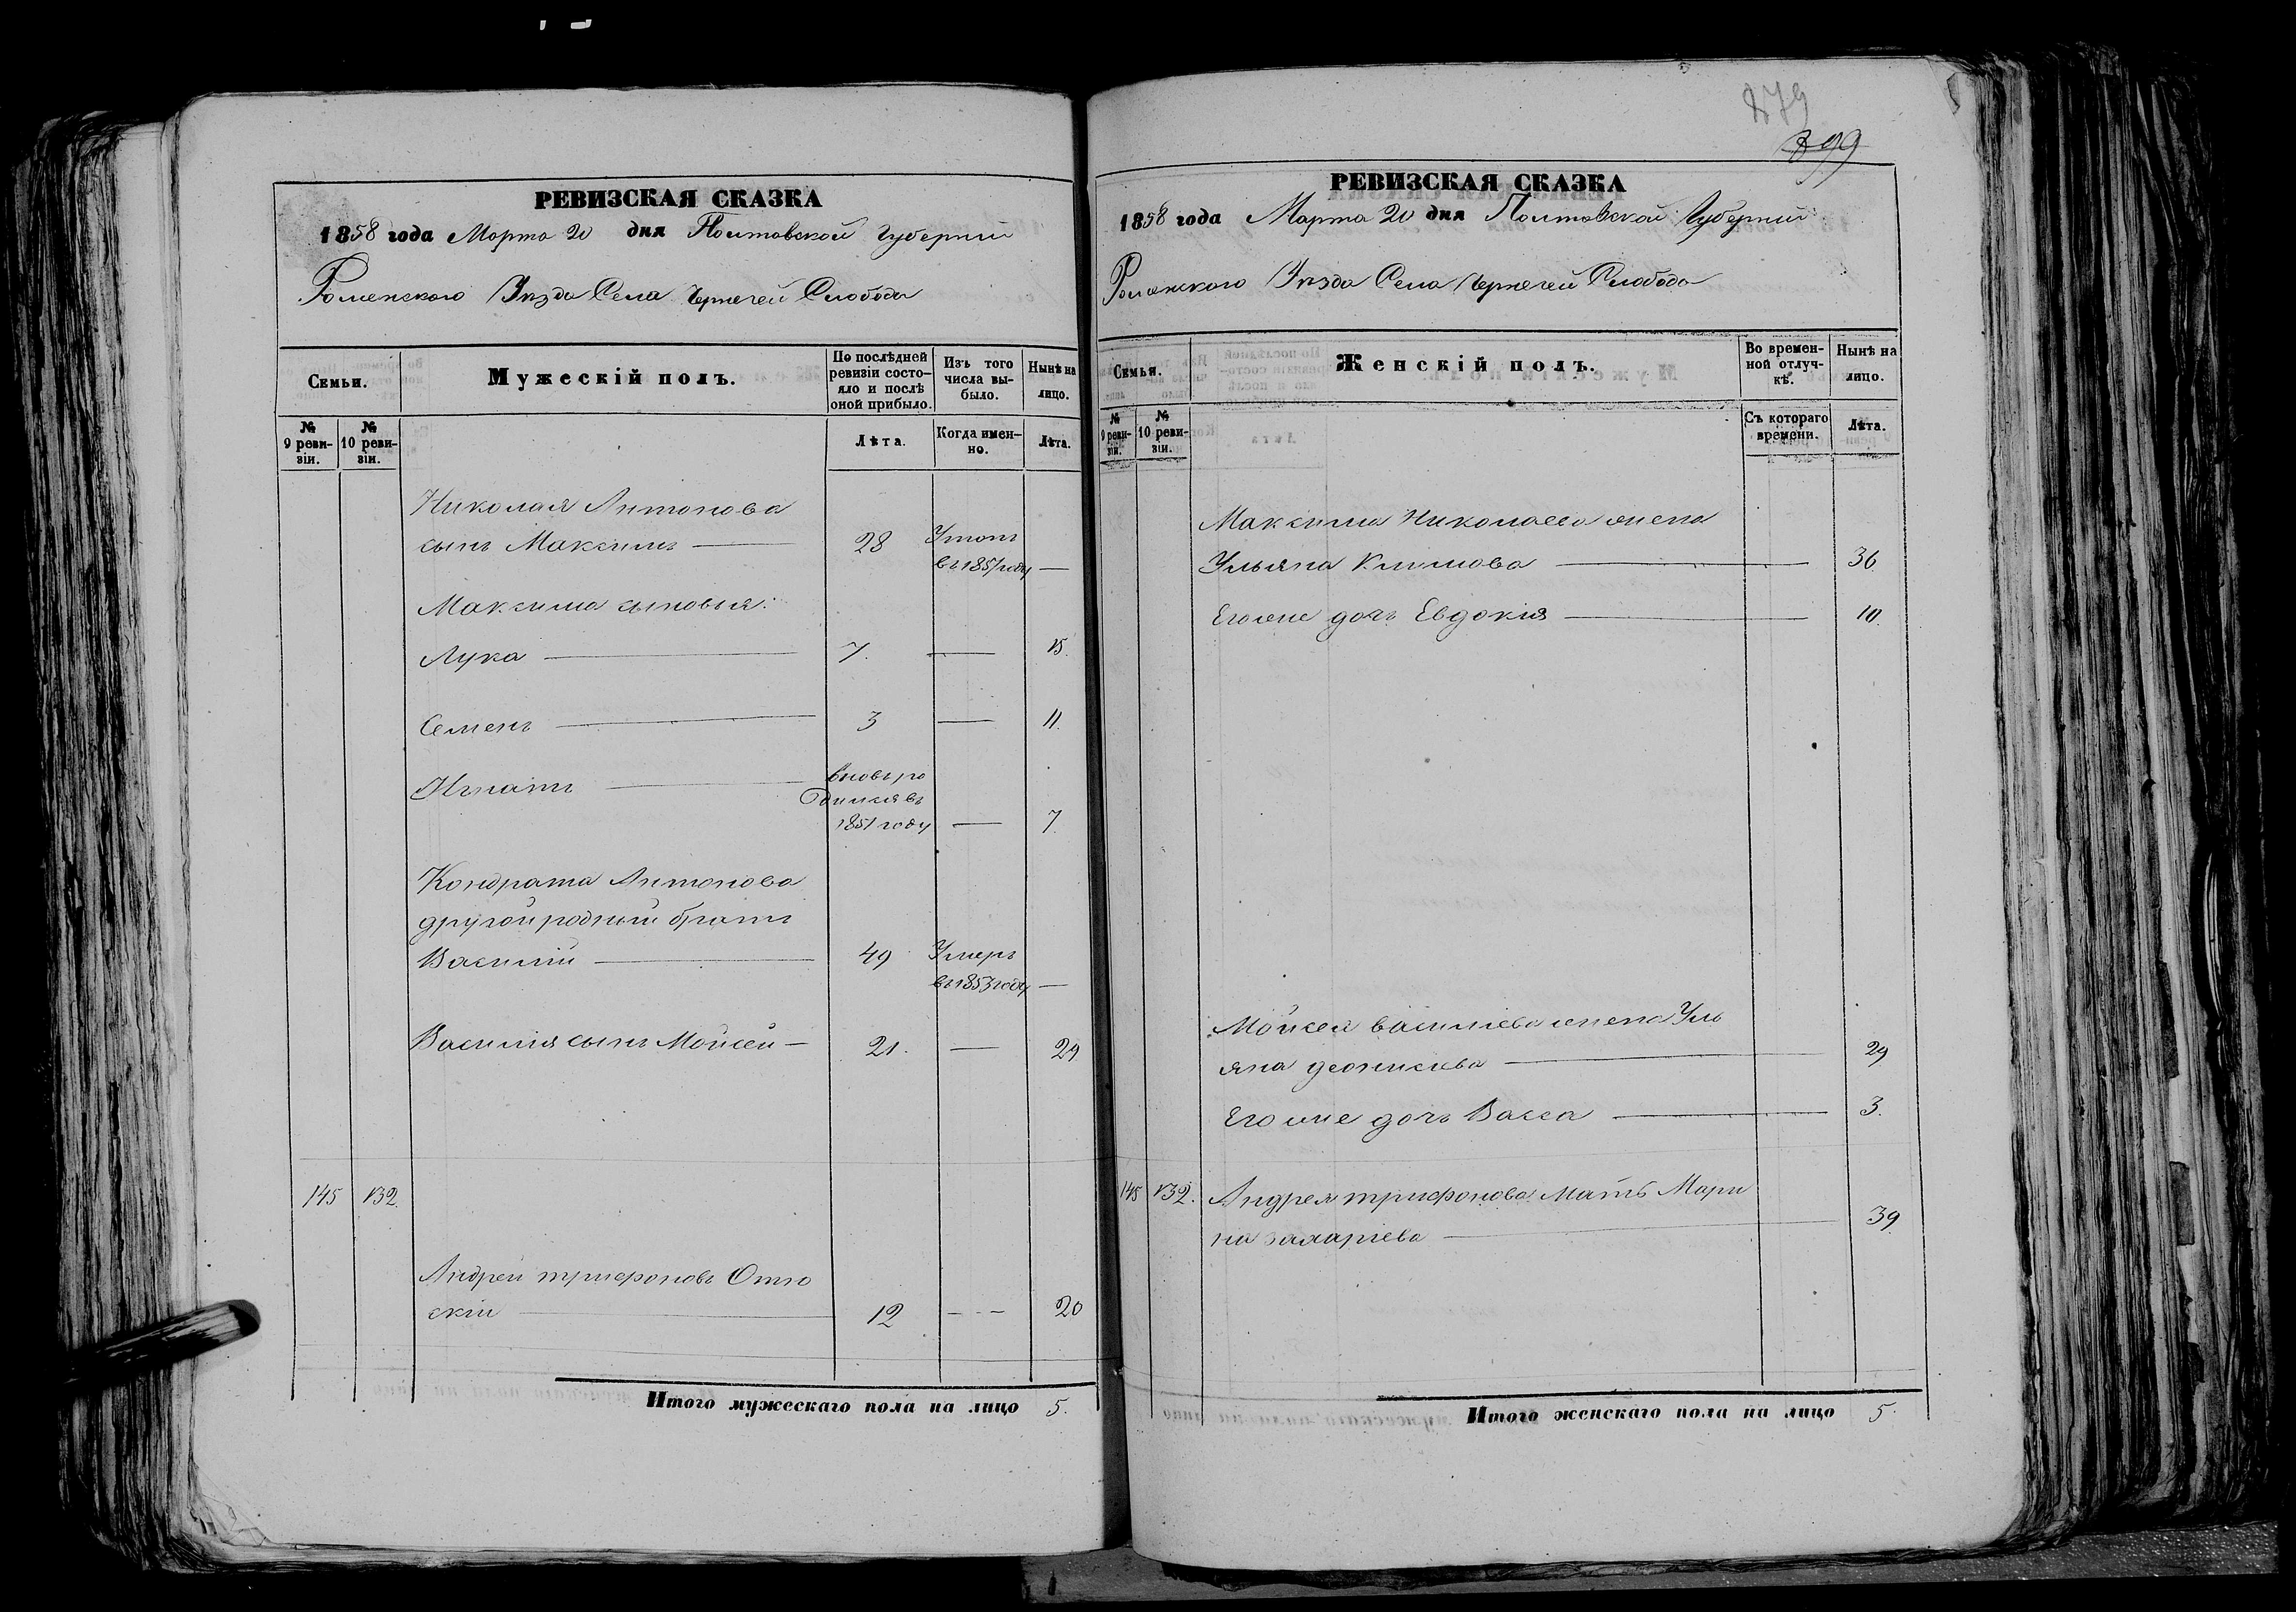 РЕВИЗСКАЯ СКАЗКА
1858 года Марта 20 дня Полтавской Губерніи
Роменского Уѣзда Села Чернечей Слободы
Семьи.
Мужескій полъ.
По послѣдней
ревизіи состо-
яло и послѣ
оной прибыло.
Изъ того
числа вы-
было.
Нынѣ на
лицо.
№
9 реви-
зіи.
№
10 реви-
зіи.
Лѣта.
Когда имен-
но.
Лѣта.
Николая Антонова
сынъ Максимъ — 28 Утопъ
въ 1857 году —
Максима сыновья:
Лука — 7. — 15.
Семенъ — 3 — 11.
Игнатъ — вновь ро
дился въ
1851 году — 7.
Кондрата Антонова
другой родный братъ
Василій — 49 Умеръ
въ 1853 году —
Василія сынъ Мойсей — 21. — 29
145 132.
Андрей трифоновъ
скій — 12 — 20
Итого мужескаго пола на лицо 5.
879
899
РЕВИЗСКАЯ СКАЗКА
1858 года Марта 20 дня Полтавской Губерніи
Роменского Уѣзда Села Чернечей Слободы
Семьи.
Женскій полъ.
Во времен-
ной отлуч-
кѣ.
Нынѣ на
лицо.
№
9 реви-
зіи.
№
10 реви-
зіи.
Съ котораго
времени.
Лѣта.
Максима Николаева жена
Ульяна Климова — 36
Егоже дочь Евдокія — 10.
Мойсея васильева жена Уль
яна деонисіева — 29
Егоже дочь Васса — 3.
145 132. Андрея трифонова мать Мари
на захаріева — 39
Итого женскаго пола на лицо 5.